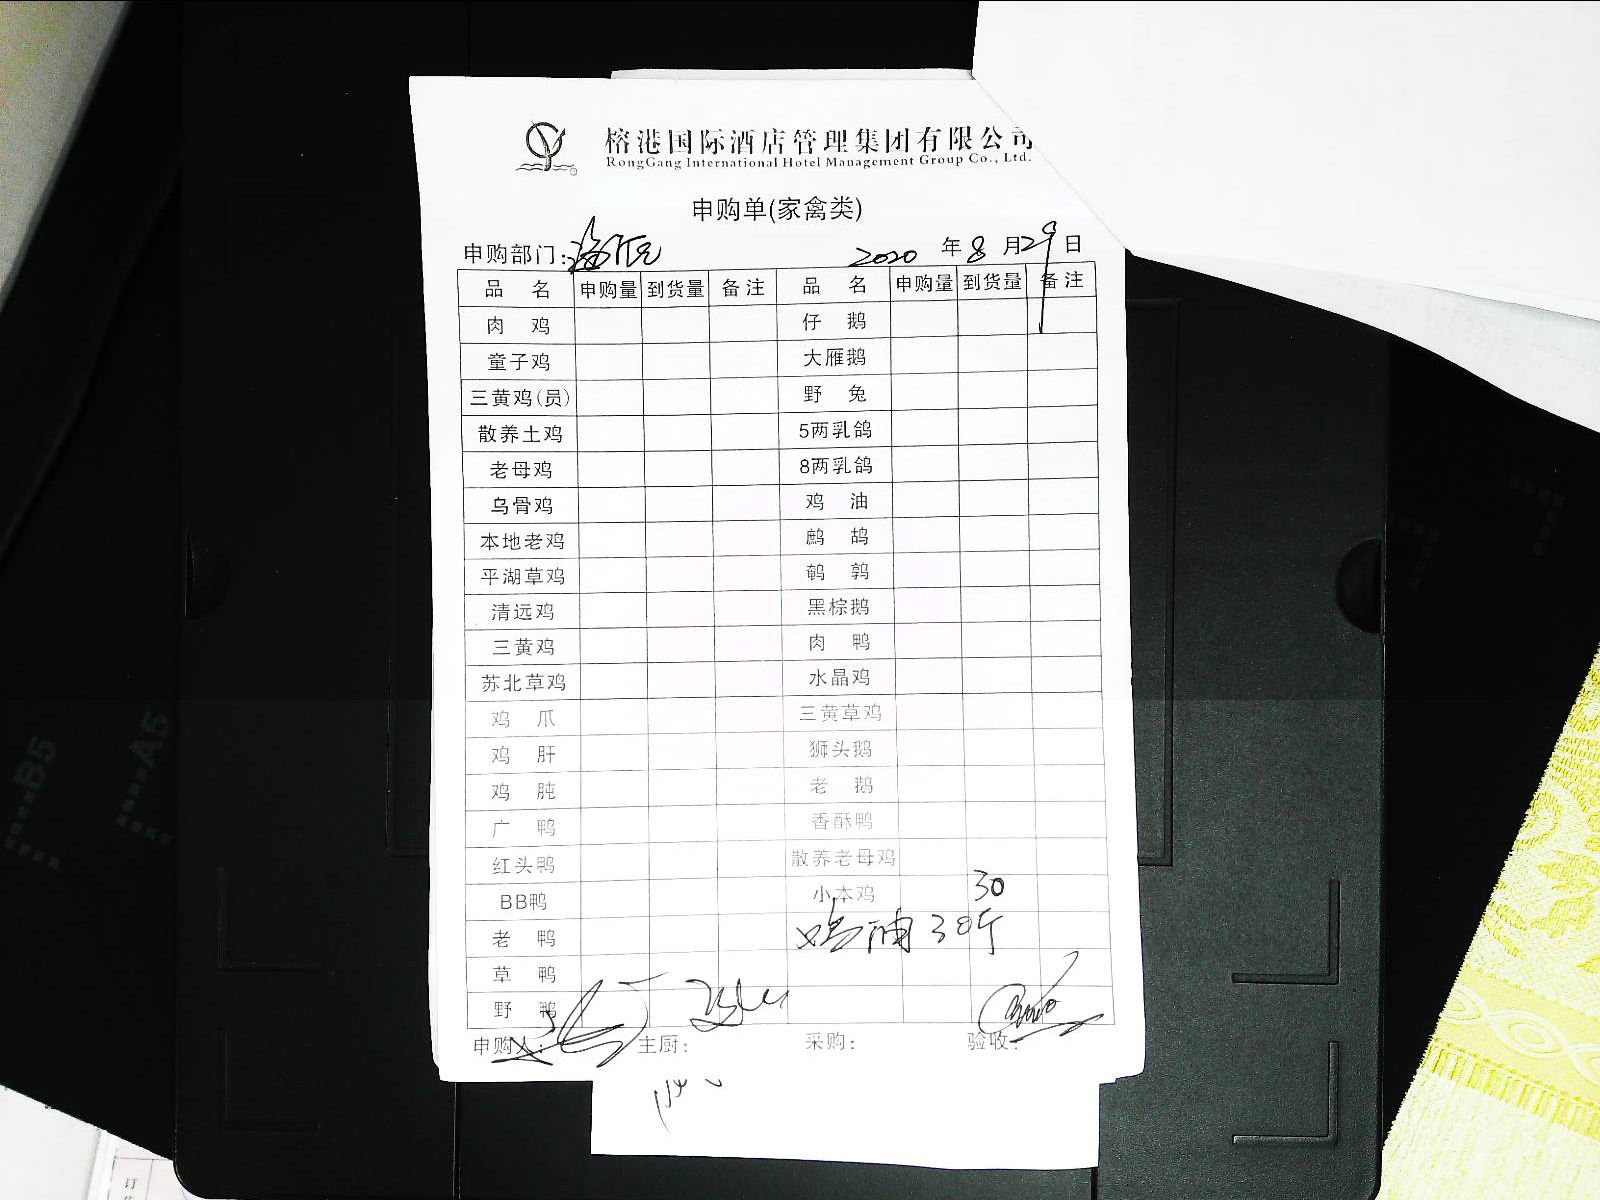 榕港国际酒店管理集团有限公司
RongGang International Hotel Management Group Co., Ltd.
申购单(家禽类)
申购部门: 2020 年 8 月 29 日
品名 申购量 到货量 备注 品名 申购量 到货量 备注
肉鸡 仔鹅
童子鸡 大雁鹅
三黄鸡(员) 野兔
散养土鸡 5两乳鸽
老母鸡 8两乳鸽
乌骨鸡 鸡油
本地老鸡 鹧鸪
平湖草鸡 鹌鹑
清远鸡 黑棕鹅
三黄鸡 肉鸭
苏北草鸡 水晶鸡
鸡爪 三黄草鸡
鸡肝 狮头鹅
鸡肫 老鹅
广鸭 香酥鸭
红头鸭 散养老母鸡
BB鸭 小本鸡 30
老鸭 鸡油 30斤
草鸭
野鸭
申购人: 主厨: 采购: 验收:
B5
A5
订